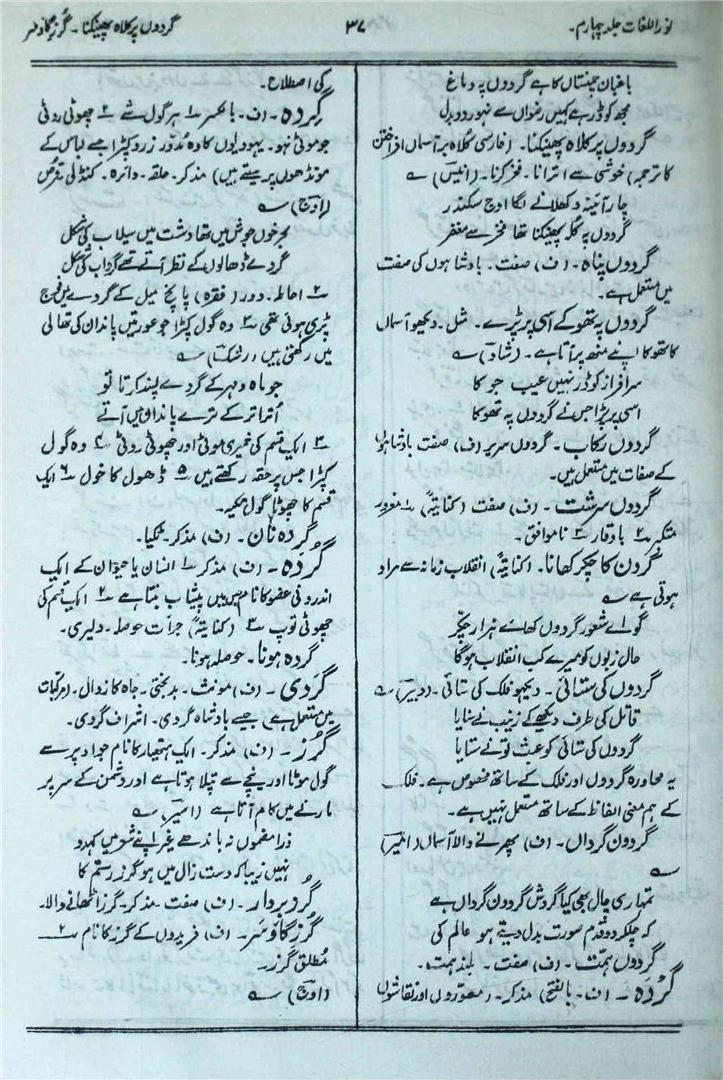 نور اللغات جلد چہارم۔
۳۷
گردوں پر کلاہ پھینکنا۔ گرز گاؤسر
باغباں جینستاں کا ہے گردوں پہ دماغ
مجھ کو ڈر ہے کہیں رضواں سے نہو رد و بدل
گردوں پر کلاہ پھینکنا۔ (فارسی کلاہ بر آسماں افراختن
کا ترجمہ) خوشی سے اترانا۔ فخر کرنا۔ (انیسؔ) ؎
چار آئینہ دکھلانے لگا اوج سکندر
گردوں پہ کُلہ پھینکتا تھا فخر سے مغفر
گردوں پناہ۔ (ف) صفت۔ بادشاہوں کی صفت
میں مستعمل ہے۔
گردوں پہ تھوکے اسی پر پڑے۔ مثل۔ دیکھو آسماں
کا تھوکا اپنے منھ پر آتا ہے۔ (شادؔ) ؎
سرافراز کو ڈر نہیں عیب جو کا
اسی پر پڑا جس نے گردوں پہ تھوکا
گردوں رکاب۔ گردوں سریر (ف) صفت بادشاہوں
کے صفات میں مستعمل ہیں۔
گردوں سرشت۔ (ف) صفت (کنایتہً) ۱ مغرور
متکبر ۲ باوقار ۳ ناموافق۔
گردن کا چکر کھانا۔ (کنایتہً) انقلاب زمانہ سے مراد
ہوتی ہے ؎
گو اے شعور گردوں کھائے ہزار چکر
حال زبوں کو میرے کب انقلاب ہو گا
گردوں کی ستائی۔ دیکھو فلک کی ستائی۔ (دبیرؔ) ؎
قاتل کی طرف دیکھ کے زینب نے سنایا
گردوں کی ستائی کو عبث تو نے ستایا
یہ محاورہ گردوں اور فلک کے ساتھ مخصوص ہے۔ فلک
کے ہم معنی الفاظ کے ساتھ مستعمل نہیں ہے۔
گردون گرداں۔ (ف) پھرنے والا آسماں (امیرؔ)
؎
تمہاری چال بھی کیا گردش گردون گرداں ہے
کہ چلکر دو قدم صورت بدل دیتے ہو عالم کی
گردوں ہمّت۔ (ف) صفت۔ بلند ہمت۔
گَردہ۔ (ف۔ بالفتح) مذکر۔ (مصوروں اور نقاشوں
کی اصطلاح۔
گِردہ۔ (ف۔ بالکسر ۱ ہر گول شے ۲ چھوٹی روٹی
جو موٹی نہو۔ یہودیوں کا وہ مدّور زرد کپڑا جسے لباس کے
مونڈھوں پر سیتے ہیں) مذکر۔ حلقہ۔ دائرہ۔ کنڈلی۔ قرص
(اوجؔ) ؎
بحر خوں جوش میں تھا دشت میں سیلاب کی شکل
گردے ڈھالوں کے نظر آتے تھے گرداب کی شکل
۲ احاطہ۔ دور (فقرہ) پانچ میل کے گردے میں فوج
پڑی ہوئی تھی ۳ وہ گول کپڑا جو عورتیں پاندان کی تھالی
میں رکھتی ہیں (رشکؔ) ؎
جو ماہ و مہر کے گردے پسند کرتا تو
اُتر اُتر کے ترے پاندان میں آتے
۳ ایک قسم کی خمیری موٹی اور چھوٹی روٹی ۴ وہ گول
کپڑا جس پر حقہ رکھتے ہیں ۵ ڈھول کا خول ۶ ایک
قسم کا چھوٹا گول تکیہ۔
گردہ نان۔ (ف) مذکر۔ ٹکیا۔
گُردہ۔ (ف) مذکر ۱ انسان یا حیوان کے ایک
اندرونی عضو کا نام جس میں پیشاب بنتا ہے ۲ ایک قسم کی
چھوٹی توپ ۳ (کنایتہً) جرات حوصلہ۔ دلیری۔
گردہ ہونا۔ حوصلہ ہونا۔
گَردی۔ (ف) مونث۔ بدبختی۔ جاہ کا زوال۔ (مرکبات
میں مستعمل ہے) جیسے بادشاہ گردی۔ اشراف گردی۔
گُرز۔ (ف) مذکر۔ ایک ہتھیار کا نام جو اوپر سے
گول موٹا اور نیچے سے پتلا ہوتا ہے اور دشمن کے سر پر
مارنے میں کام آتا ہے (اسیرؔ) ؎
ذرا مضموں نہ باندھے غیر اپنے شعر میں کہدو
نہیں زیبا کہ دست زال میں ہو گرز رستم کا
گرزبردار۔ (ف) صفت۔ مذکر۔ گرز اٹھانے والا۔
گُرز گاؤسر۔ (ف) فریدوں کے گرز کا نام ۲
مُطلق گُرز۔
(اوجؔ) ؎